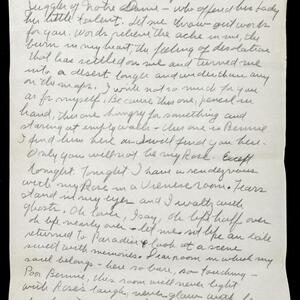 Juggler of Notre Dame - who offered his Lady
his little talent. Let me throw out words
for you. Words relieve the ache in me, the
burn in my heart, the feeling of desolation
that has settled on me and turned me
into a desert longer and wider than any
on the maps. I write not so much for you
as for myself. Because this one, pencil in
hand, this one hungry for something and
staring at emptiness - this one is Bennie
I find him here as I will find you here.
Only you will not be my Rose.
tonight. Tonight I have a rendezvous
with my Rose in a Viennese room. Tears
stand in my eyes and I waltz with
ghosts. Oh love, I say, oh left half over
oh life nearly over - let me sit like an
returned to Paradise look at a scene
swell with memories. Dear room in which my
soul belongs - here so bare, so touching -
Poor Bennie, this room will never light
with Rose's laugh, never glow with